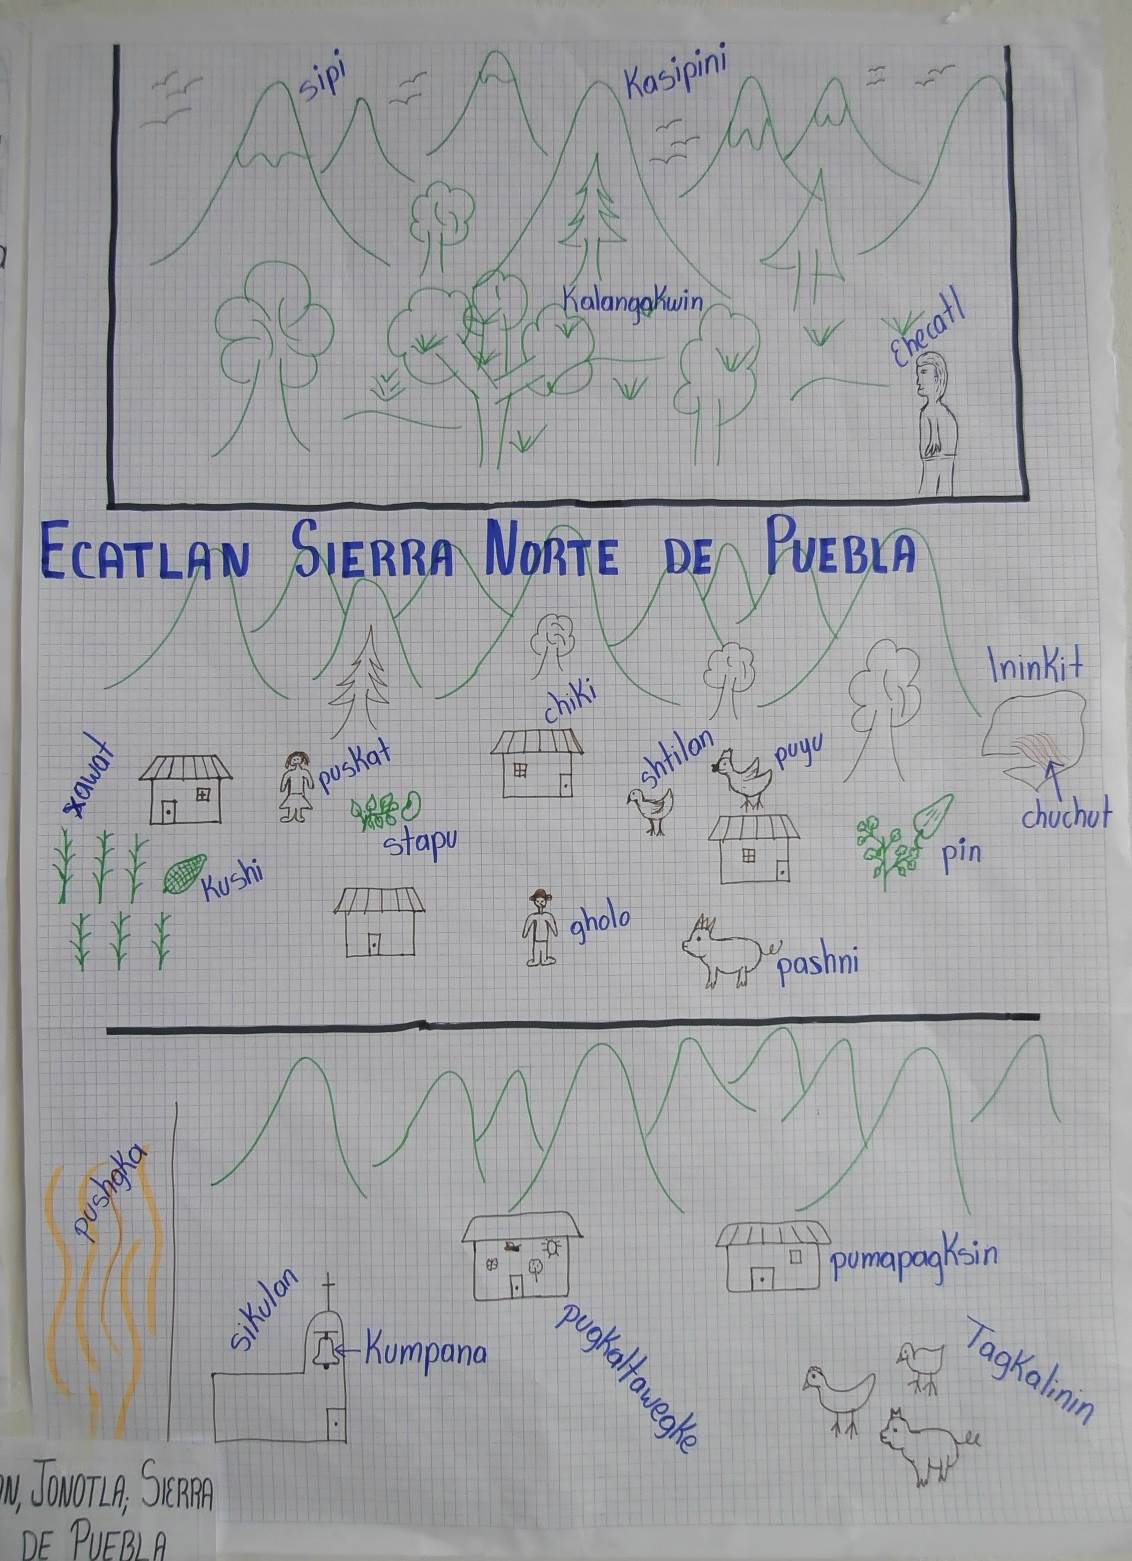 sipi
Kasipini
Kalangakwin
Ehecatl
ECATLAN SIERRA NORTE DE PUEBLA
Ininkit
chiki
xawat
puskat
shtilan
puyu
chuchut
stapu
kushi
pin
gholo
pashni
pushgka
sikulan
Kumpana
pugkaltawegke
pumapagksin
Tagkalinin
JONOTLA, SIERRA
DE PUEBLA